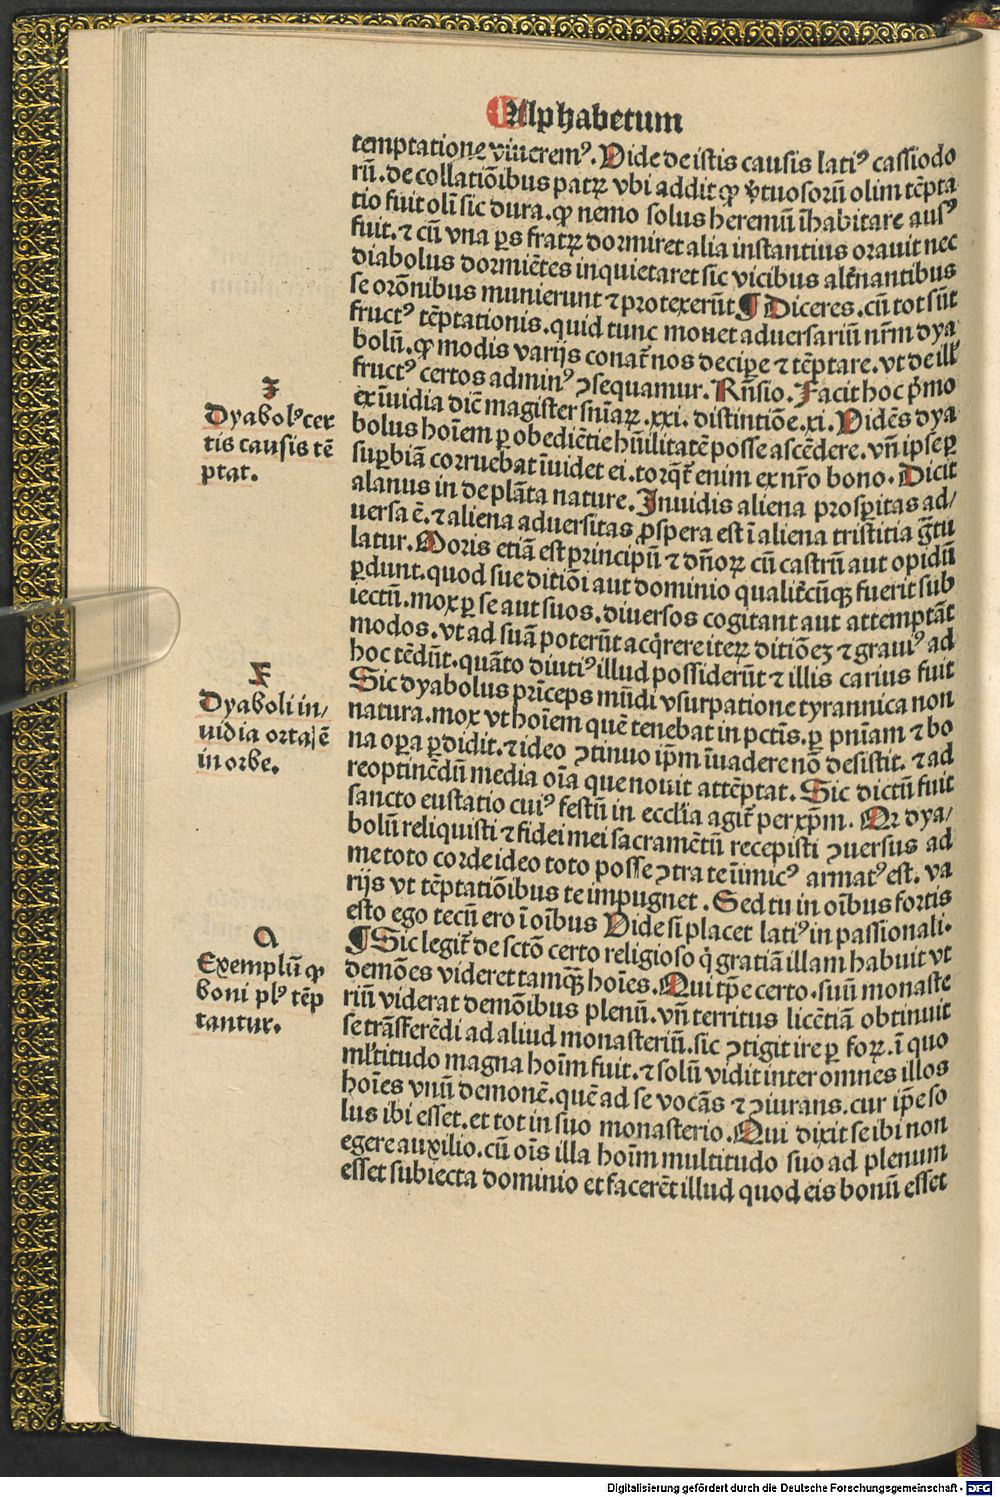 Alphabetum
temptatione viueremꝰ. Vide de istis causis latiꝰ cassiodo
rū. de collatiōibus patꝝ vbi addit ꝙ v̓tuosorū olim tēpta
tio fuit oli̅ sic dura. ꝙ nemo solus heremū īhabitare ausꝰ
fuit. ⁊ cū vna ꝑs fratꝝ dormiret alia instantius orauit nec
diabolus dormiētes inquietaret sic̄ vicibus alt̓nantibus
se orōnibus munierunt ⁊ protexerūt ¶ Diceres. cū tot sūt
fructꝰ tēptationis. quid tunc mouet aduersariū nr̄m dya
bolū. ꝙ modis varijs conat̄ nos decipe ⁊ tēptare. vt de ill̓
fructꝰ certos adminꝰ ꝯsequamur. Rn̄sio. Facit hoc p̓mo
ex īuidia dic̄ magister sn̄iaꝝ. xxi. distintiōe. xi. Vidēs dya
bolus hoīem ꝑ obediētie hūilitatē posse ascēdere. vn̄ ipse ꝑ
suꝑbiā corruebat īuidet ei. torq̄t̄ enim ex nr̄o bono. Dicit
alanus in de plāta nature. Inuidis aliena prosꝑitas ad/
uersa ē. ⁊ aliena aduersitas ꝓspera est ī aliena tristitia gr̄tu
latur. Moris etiā est principū ⁊ dn̄oꝝ cū castrū aut opidū
ꝑdunt. quod sue ditiōi aut dominio qualit̓cūqꝫ fuerit sub
iectū. mox ꝑ se aut suos. diuersos cogitant aut attemptāt
modos. vt ad suā poterūt acq̓rere iteꝝ ditiōeꝫ ⁊ grauiꝰ ad
hoc tēdūt. quāto diutiꝰ illud possiderūt ⁊ illis carius fuit
Sic dyabolus prīceps mūdi vsurpatione tyrannica non
natura. mox vt hoīem quē tenebat in pctīs. ꝑ pn̄iam ⁊ bo
na oꝑa ꝑdidit. ⁊ ideo ꝯtinuo ip̄m īuadere nō desistit. ⁊ ad
reoptinēdū media oīa que nouit attēptat. Sic dictū fuit
sancto eustatio cuiꝰ festū in eccl̓ia agit̄ per xp̄m. Qr dya/
bolū reliquisti ⁊ fidei mei sacramētū recepisti ꝯuersus ad
me toto corde ideo toto posse ꝯtra te īimicꝰ armatꝰ est. va
rijs vt tēptatiōibus te impugnet. Sed tu in oībus fortis
esto ego tecū ero ī oībus Vide si placet latiꝰ in passionali.
¶ Sic legit̄ de sctō certo religioso q̓ gratiā illam habuit vt
demōes videret tamqꝫ hoīes. Qui tp̄e certo. suū monaste
riū viderat demōibus plenū. vn̄ territus licētiā obtinuit
se trāsferēdi ad aliud monasteriū. sic ꝯtigit ire ꝑ foꝝ. ī quo
ml̓titudo magna hoīm fuit. ⁊ solū vidit inter omnes illos
hoīes vnū demonē. quē ad se vocās ⁊ ꝯiurans. cur ip̄e so
lus ibi esset. et tot in suo monasterio. Qui dixit se ibi non
egere auxilio. cū oīs illa hoīm multitudo suo ad plenum
esset subiecta dominio et facerēt illud quod eis bonū esset
Dyabolꝰ cer
tis causis tē
ptat.
Dyaboli in/
uidia orta ē
in orbe.
Exemplū ꝙ
boni plꝰ tēp
tantur.
Digitalisierung gefördert durch die Deutsche Forschungsgemeinschaft - DFG